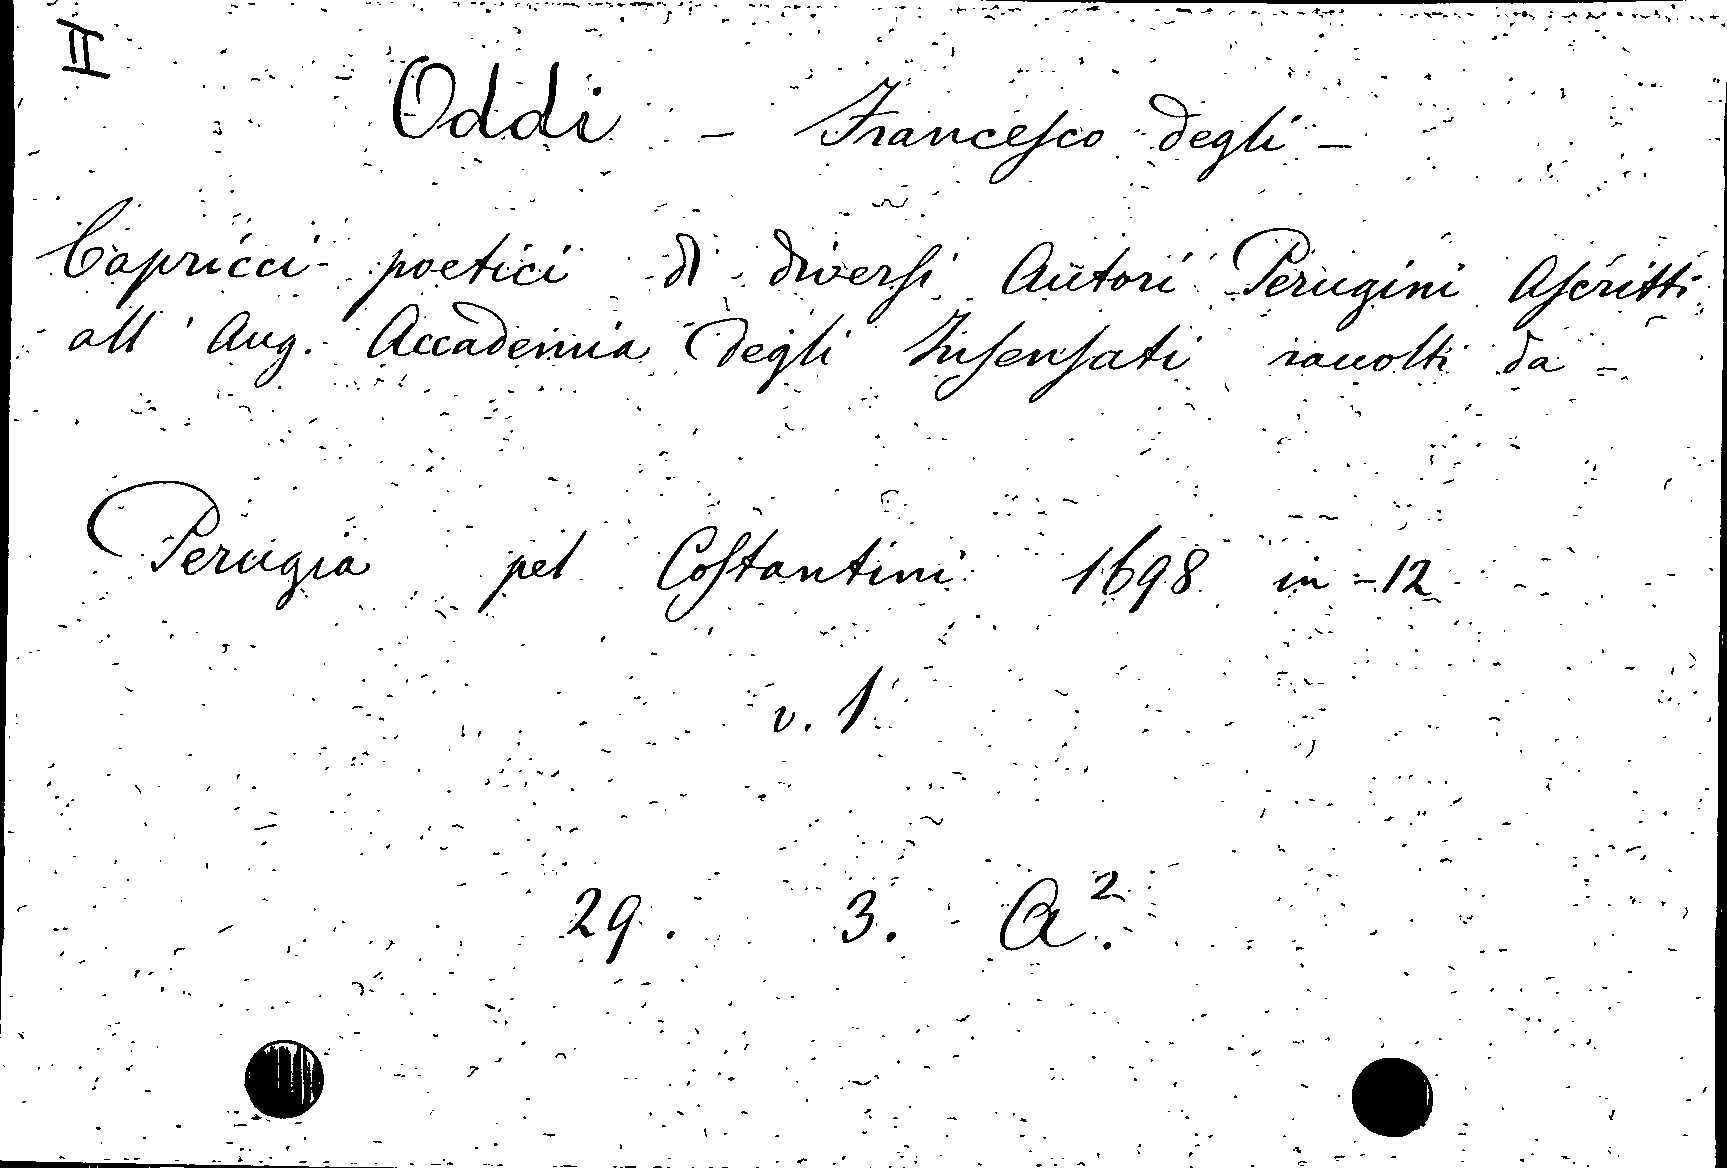 II
Oddi - Francesco degli -
Capricci poetici di diversi Autori Perugini Ascritti
all' Aug. Accademia degli Insensati raccolti da -
Perugia pel Costantini 1698 in - 12
v. 1
29. 3. A².